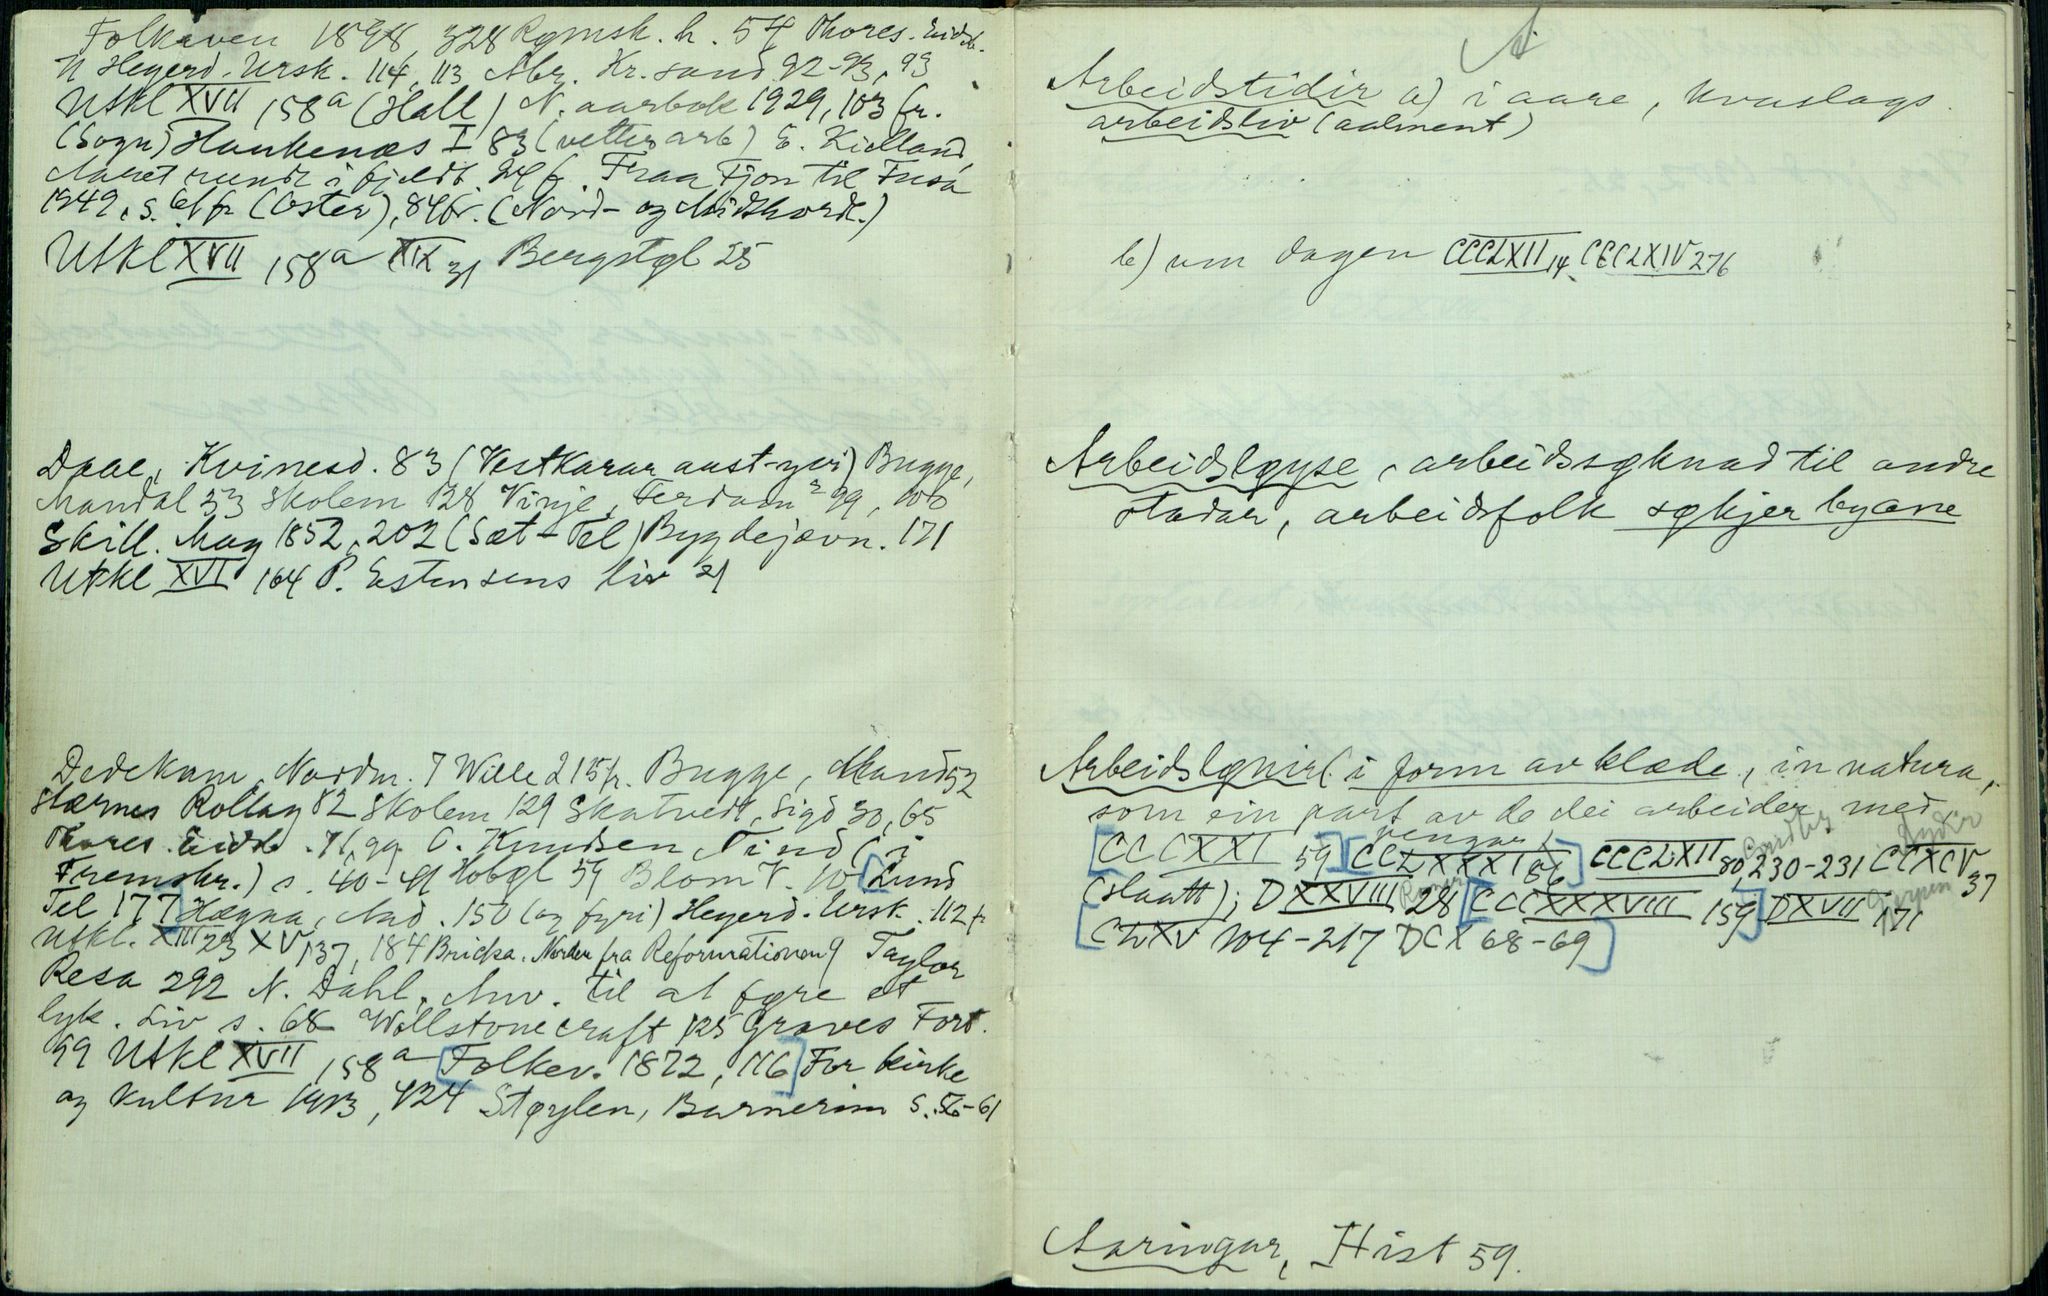 Folkeven 1898, 328 Rqmsk. h. 54 Thores. Eidsb.
N Hegerd. Ursk. 114, 113 Abr. Kr.sand 92-93, 93
Utkl XVII 158a (Hall) N. aarbok 1929, 103 fr.
(Sogn) Haukenæs I 83 (vetterarb) E. Kielland,
Aaret rundt i fjeldb. 24 f. Fraa Fjon til Fusa
1949, s. 61 fr (Oster), 84 fr. (Nord- og Midthordl.)
Utkl XVII 158a XIX 31 Bergstql 25
Daae, Kvinesd. 83 (Vestkarar aust-yvi) Bugge,
Mandal 33 Skolem 128 Vinje, Ferdam 2 99, 100
Skill. Mag 1852, 202 (Sæt-Tel) Bygdejævn. 171
Utkl XVI 164 P. Estensens liv 21
Dedekam, Nordm. 7 Wille 215 fr. Bugge, Mand 52
Stærnes Rollag 82 Skolem 129 Skatvedt, Sigd 30, 65
Thores. Eidsb. 71, 99 O. Knudsen, Tind (i
Fremskr.) s. 40-41 Hobql 59 Blom V. 10 [Lund
Tel 177] Hægna, And. 150 (og fyri) Hegerd. Ursk. 112 fr
Utkl. XIII 23 XV 137, 184 Bricka. Norden fra Reformationen 9 Taylor
Resa 292 N. Dahl, Anv. til at fqre et
lyk. Liv s. 68 Wollstonecraft 125 Graves Fort.
99 Utkl XVII 158a [Folkev. 1872, 116] For kirke
og kultur 1913, 424 Stqylen, Barnerim s. 56-61
A
Arbeidstidir a) i aare, kvaslags
arbeidsliv (aalment)
b) um dagen CCCLXII 14 CCCLXIV 276
Arbeidslqyse, arbeidssqknad til andre
stadar, arbeidsfolk sqkjer byane
Arbeidslqnir (i form av klæde, in natura,
som ein part av de dei arbeider med
pengar)
[CCCXXI 59] [CCLXXXI 86] CCCLXII 80, 230-231 CCXCV 37
(slaatt); DXXVIII 28 [CCCXXXVIII 159] DXVII 171
[CLXV 104-217 DCX 68-69]
Aaringar, Hist 59.